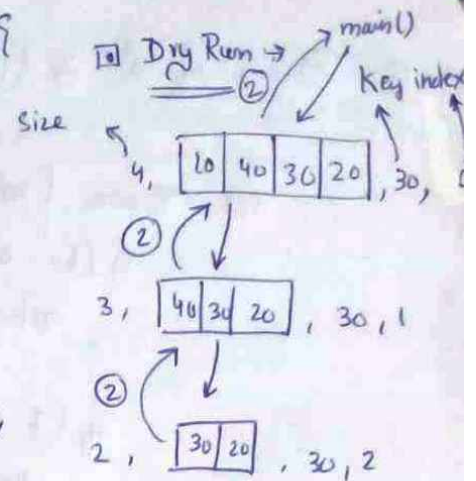 {
▣ Dry Run → main()
②
Key index
Size
4, | 10 | 40 | 30 | 20 | , 30,
②
3, | 40 | 30 | 20 | , 30, 1
②
2, | 30 | 20 | , 30, 2